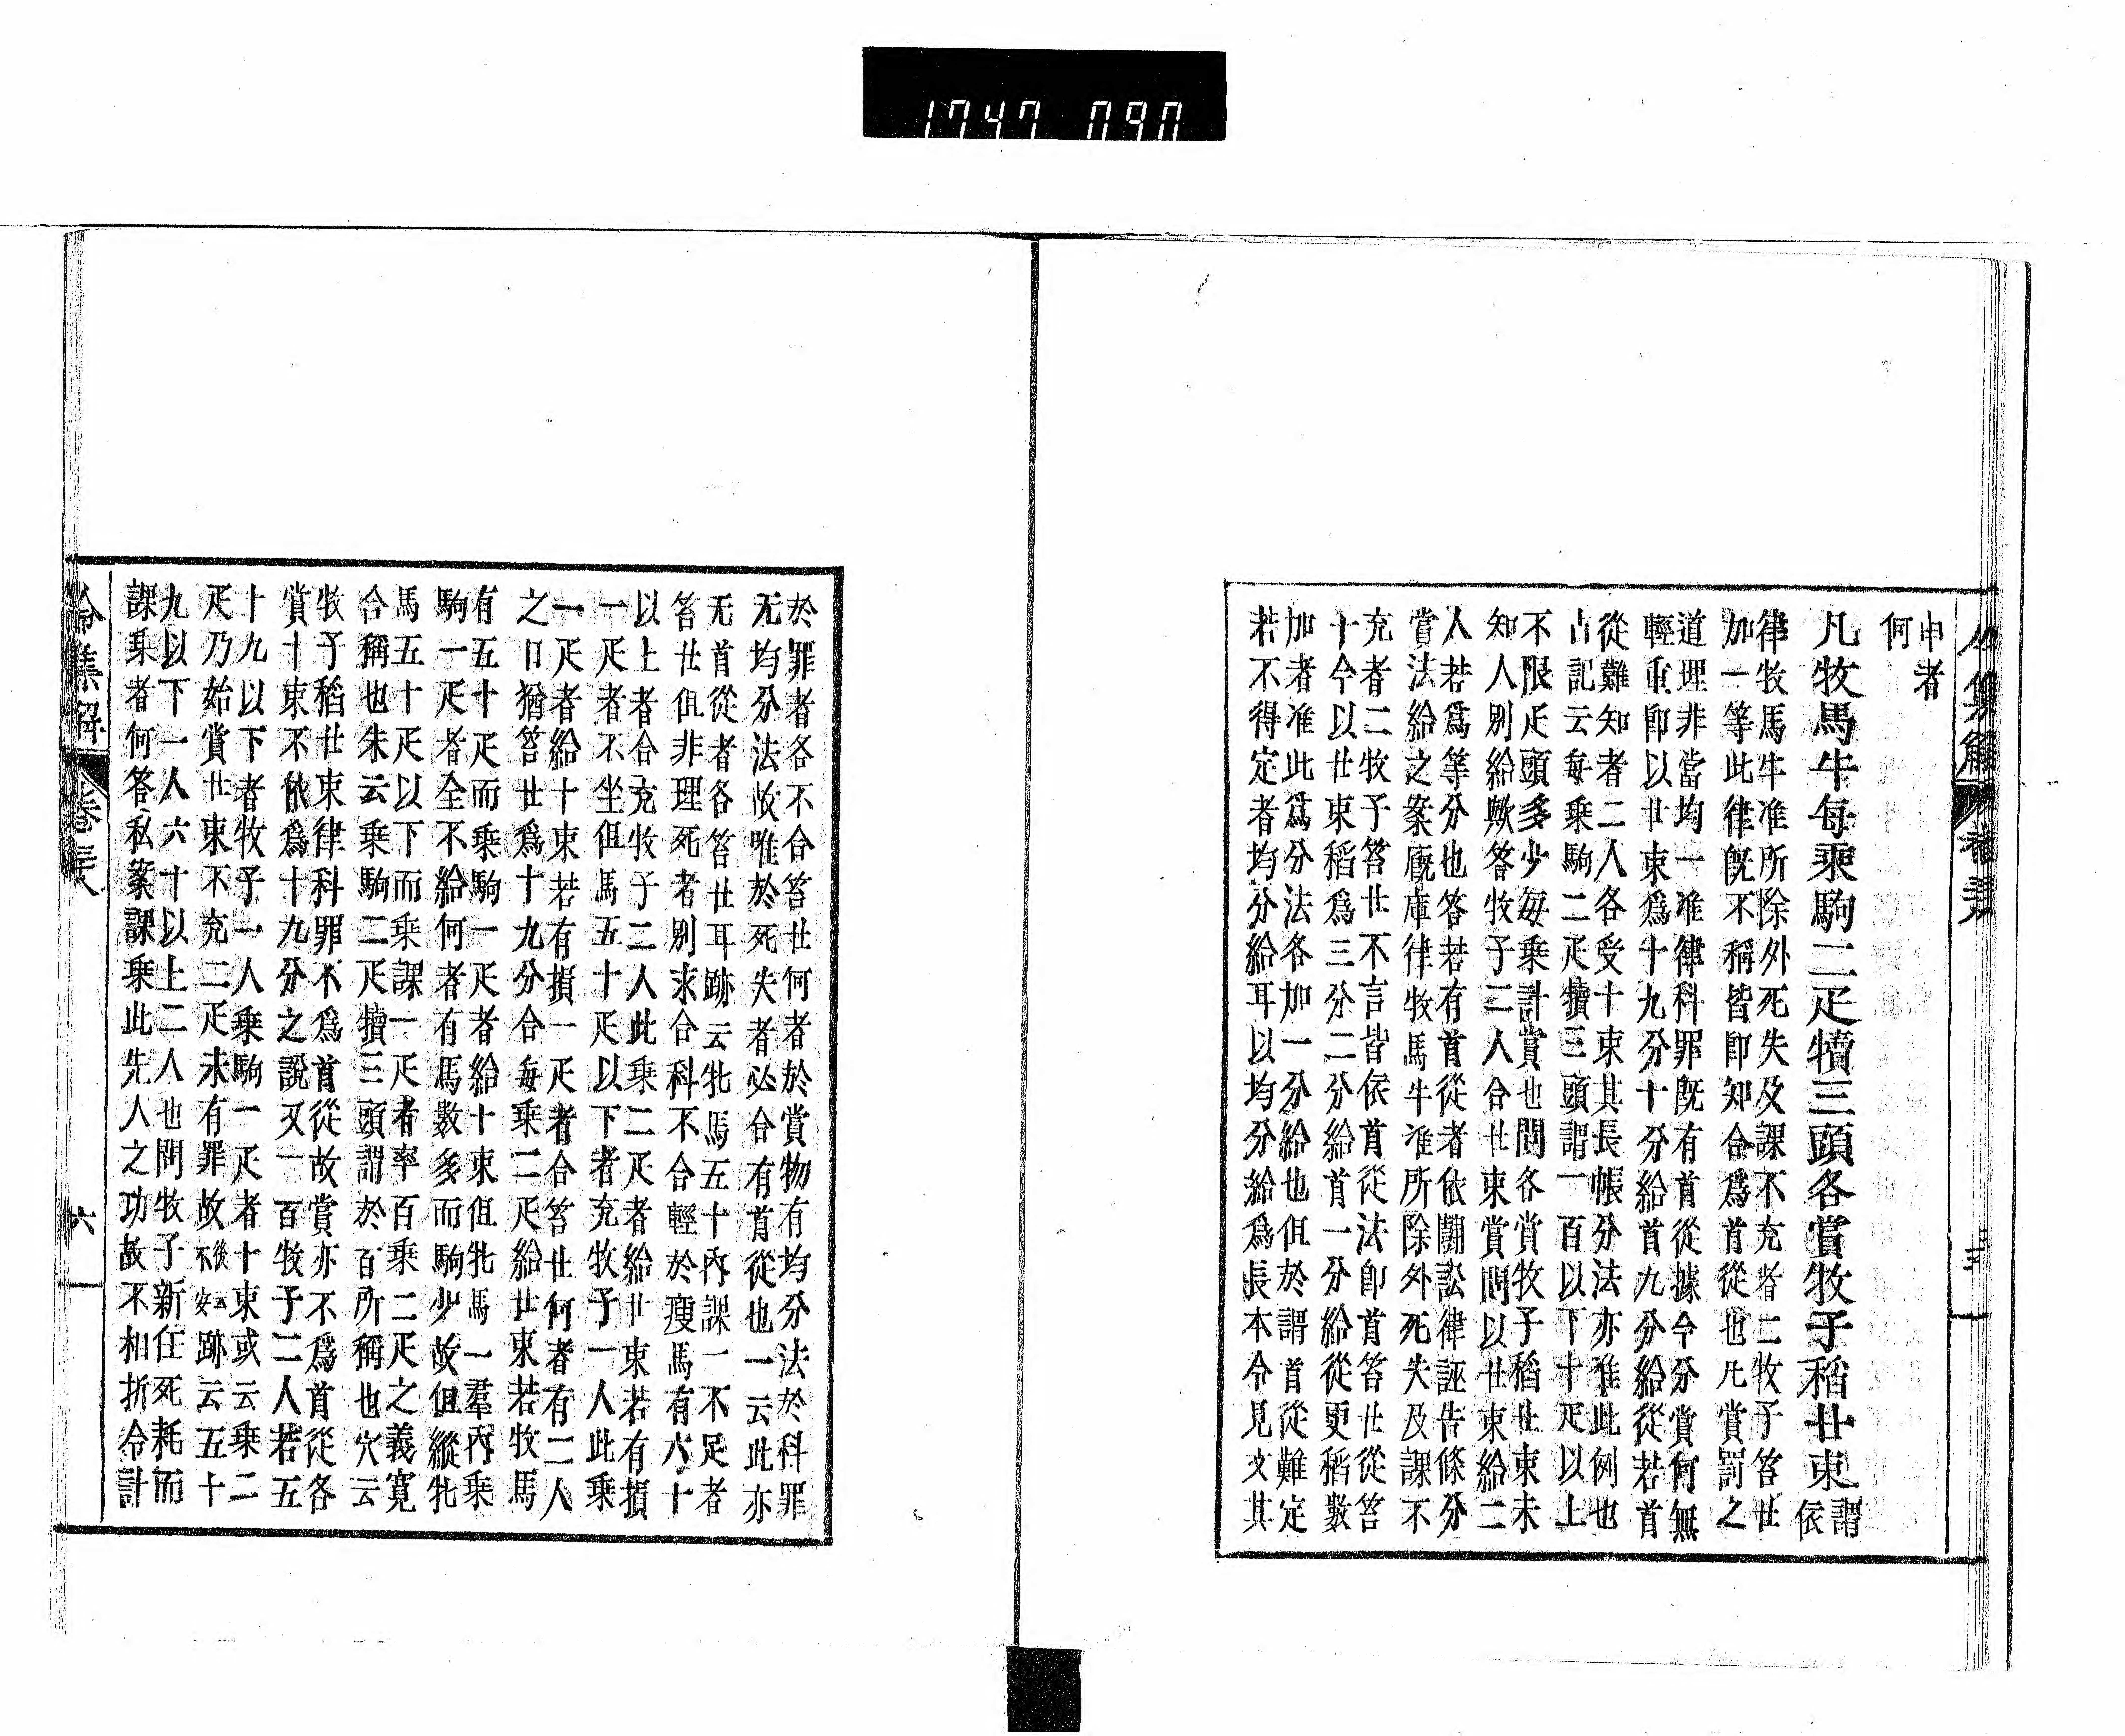 1747 090
申者
何
凡牧馬牛每乘駒二疋犢三頭各賞牧子稻廿束謂
依
律牧馬牛准所除外死失及課不充者二牧子笞廿
加一等此律旣不稱皆卽知合爲首從也凡賞罰之
道理非當均一准律科罪旣有首從據令分賞何無
輕重卽以廿束爲十九分十分給首九分給從若首
從難知者二人各受十束其長帳分法亦准此例也
古記云每乘駒二疋犢三頭謂一百以下十疋以上
不限疋頭多少每乘計賞也問各賞牧子稻廿束未
知人別給歟答牧子二人合廿束賞問以廿束給二
人若爲等分也答若有首從者依鬪訟律誣告條分
賞法給之案廐庫律牧馬牛准所除外死失及課不
充者二牧子笞廿不言皆依首從法卽首笞廿從笞
十今以廿束稻爲三分二分給首一分給從更稻數
加者准此爲分法各加一分給也但於謂首從難定
若不得定者均分給耳以均分給爲長本令見文其
於罪者各不合笞廿何者於賞物有均分法於科罪
无均分法故唯於死失者必合有首從也一云此亦
无首從者各笞廿耳跡云牝馬五十內課一不足者
笞廿但非理死者別求合科不合輕於瘦馬有六十
以上者合充牧子二人此乘二疋者給廿束若有損
一疋者不坐但馬五十疋以下者充牧子一人此乘
一疋者給十束若有損一疋者合笞廿何者有二人
之日猶笞廿爲十九分合每乘二疋給廿束若牧馬
有五十疋而乘駒一疋者給十束但牝馬一羣內乘
駒一疋者全不給何者有馬數多而駒少故但縱牝
馬五十疋以下而乘課一疋者率百乘二疋之義寬
合稱也朱云乘駒二疋犢三頭謂於百所稱也穴云
牧子稻廿束律科罪不爲首從故賞亦不爲首從各
賞十束不依爲十九分之說又一百牧子二人若五
十九以下者牧子一人乘駒一疋者十束或云乘二
疋乃始賞廿束不充二疋未有罪故後五
不安跡云五十
九以下一人六十以上二人也問牧子新任死耗而
課乘者何答私案課乘此先人之功故不相折令計
令集解 卷三八 六